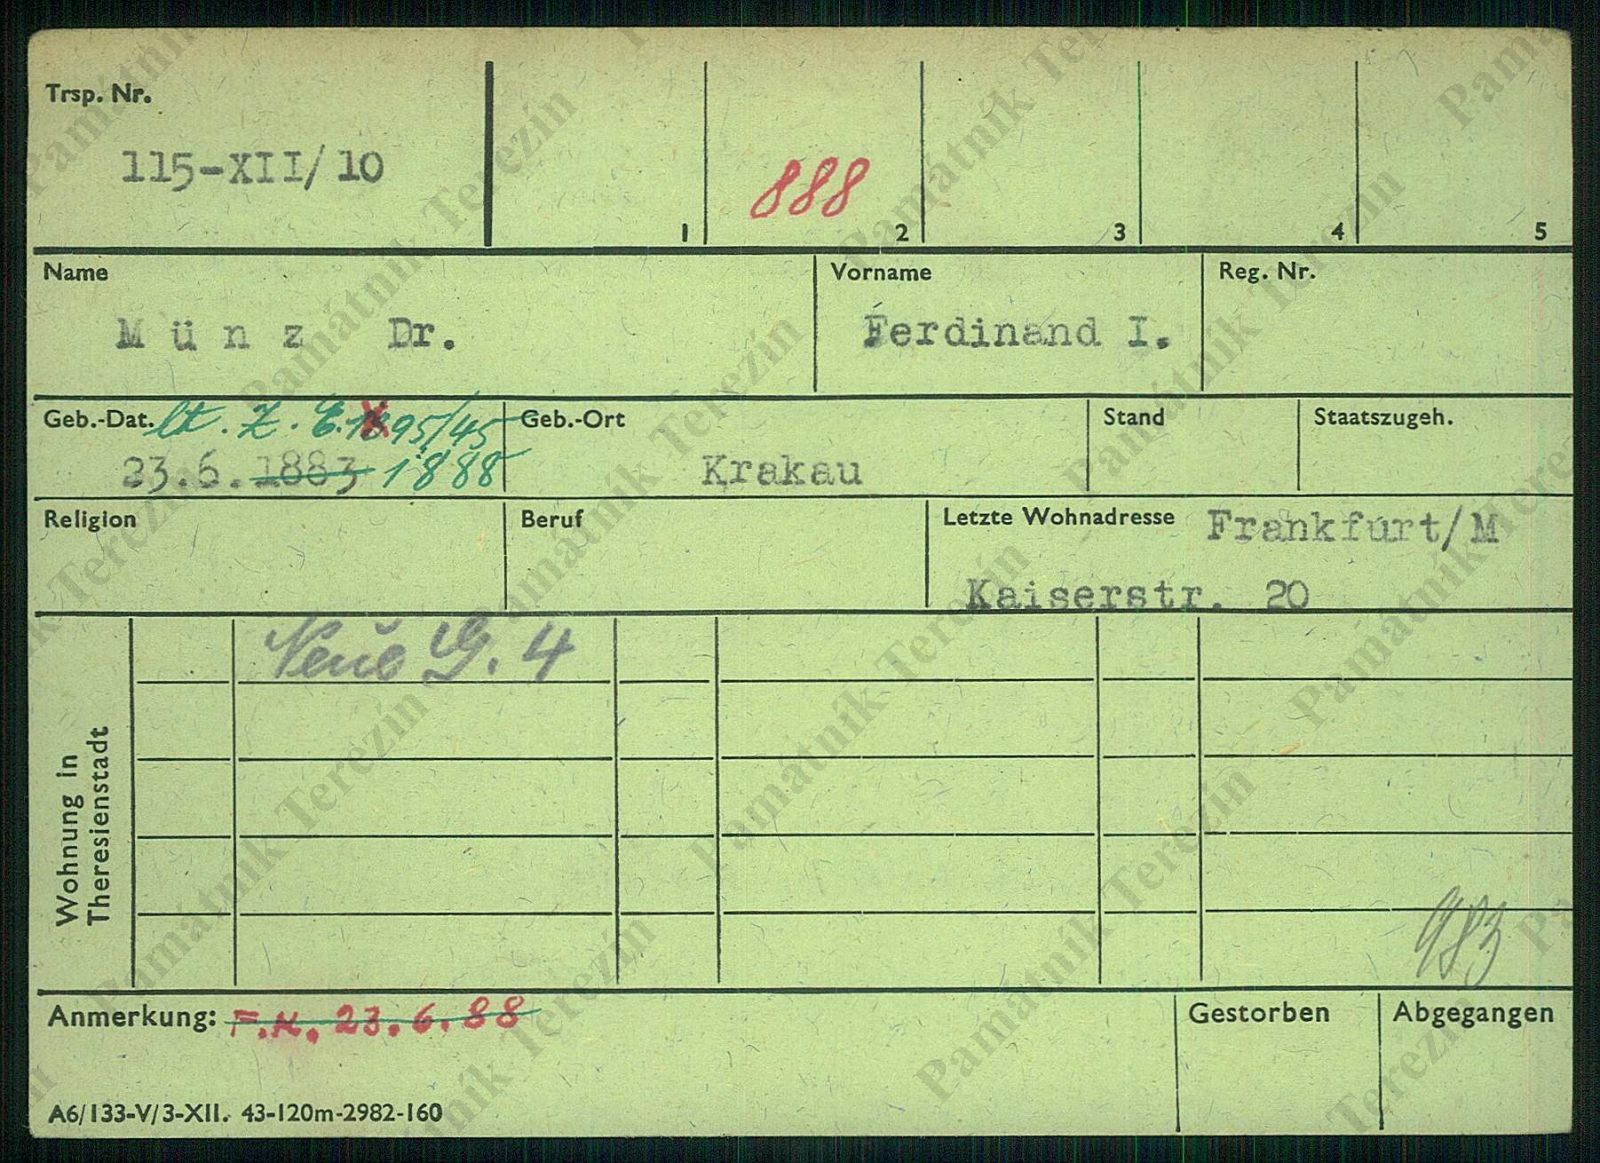 Trsp. Nr.
115-XII/10
888
1 2 3 4 5
Name Vorname Reg. Nr.
Münz Dr. Ferdinand I.
Geb.-Dat. lt. Z. E. 1895/45 Geb.-Ort Stand Staatszugeh.
23.6. 1883 1888 Krakau
Religion Beruf Letzte Wohnadresse Frankfurt/M
Kaiserstr. 20
G. 4
Wohnung in
Theresienstadt
983
Anmerkung: F.K. 23.6.88 Gestorben Abgegangen
A6/133-V/3-XII. 43-120m-2982-160
Památník Terezín